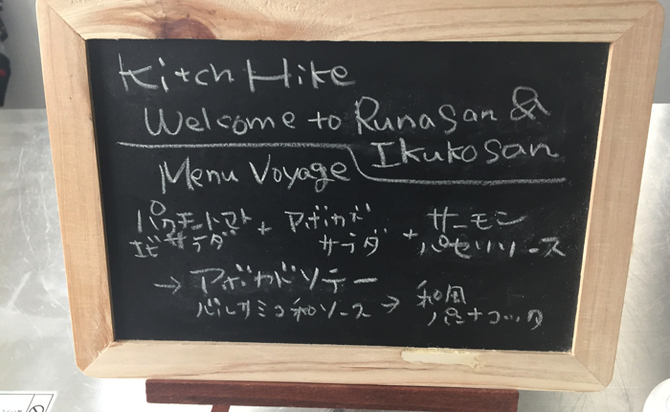 KitchHike
Welcome to Runasan &
Ikukosan
Menu Voyage
パクチートマト
エビサラダ
+ アボカド
サラダ
+ サーモン
パセリソース
→ アボカドソテー
バルサミコ和ソース
→ 和風
パンナコッタ